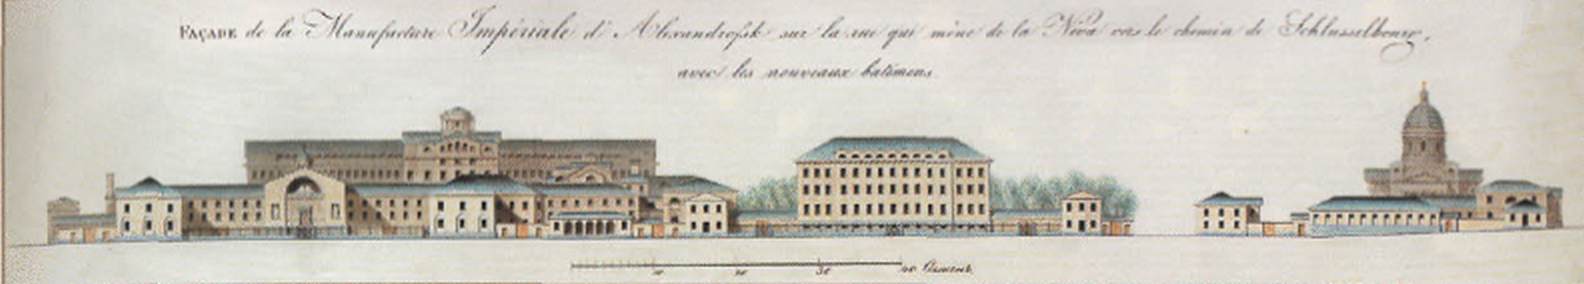 FAÇADE de la Manufacture Impériale d' Alexandrofsk sur la rue qui mène de la Néva vers le chemin de Schlusselbourg,
avec les nouveaux batimens.
10 20 30 40